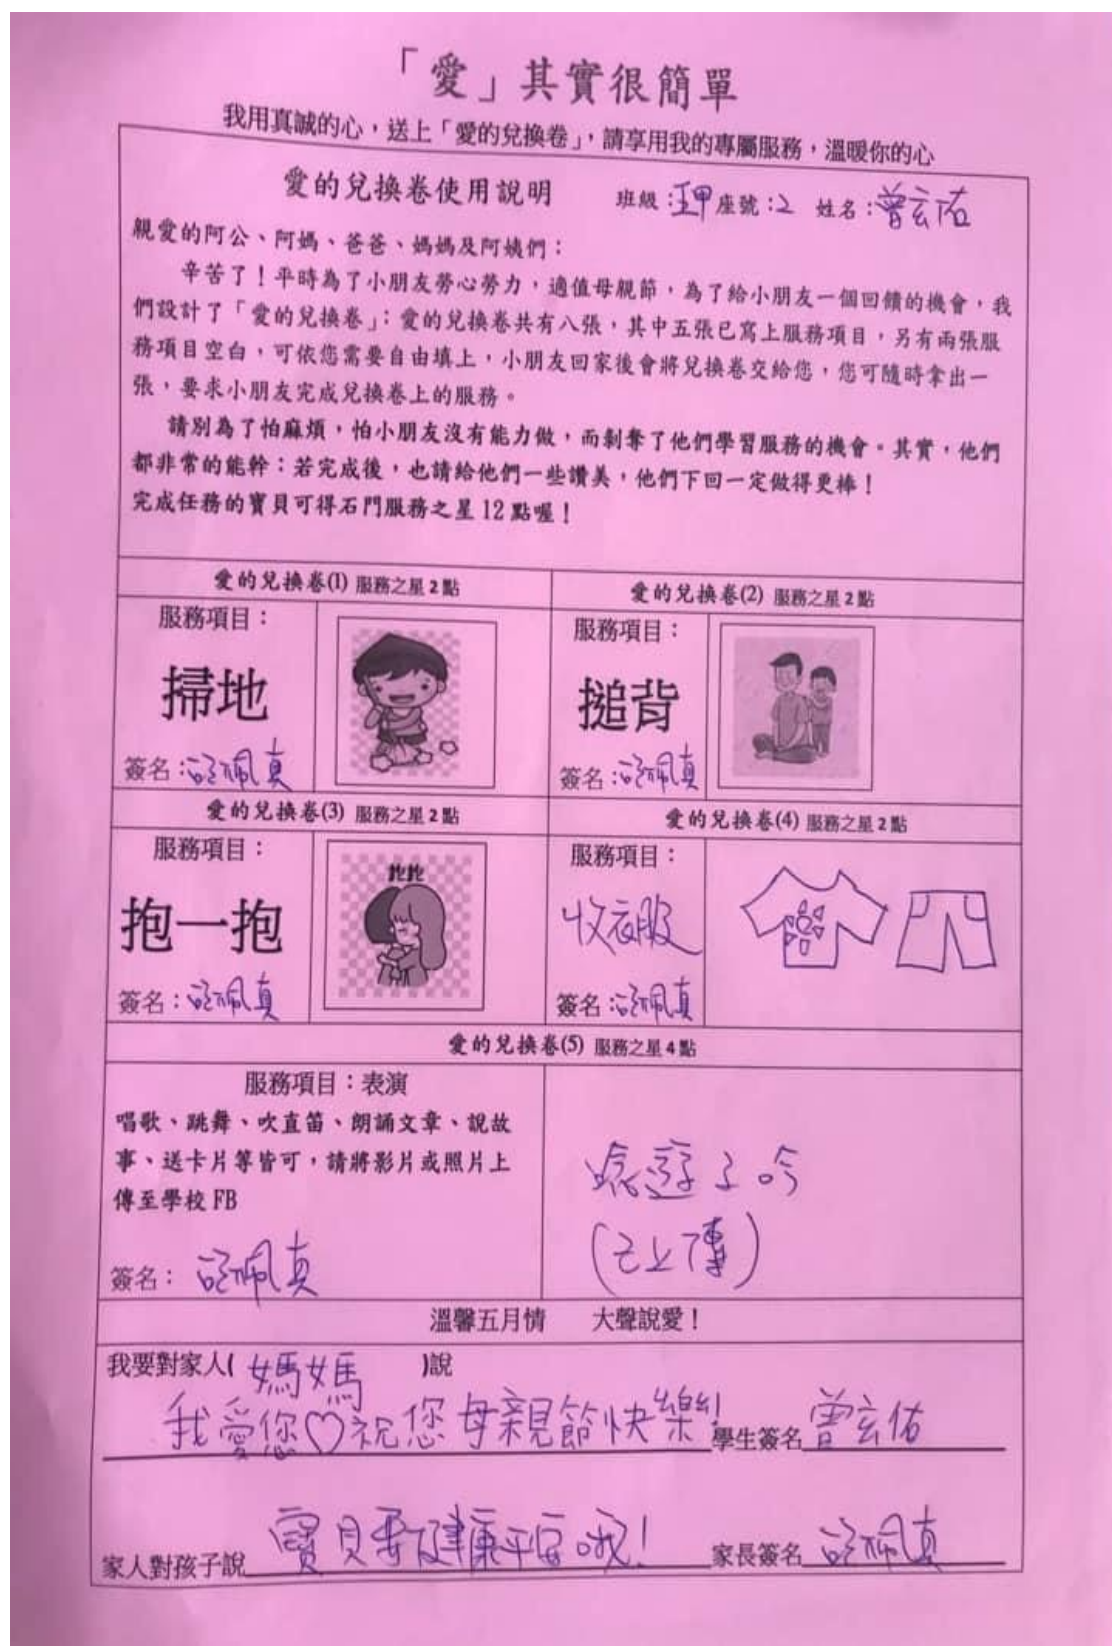 「愛」其實很簡單
我用真誠的心，送上「愛的兌換卷」，請享用我的專屬服務，溫暖你的心
愛的兌換卷使用說明 班級：五甲 座號：2 姓名：曾玄佑
親愛的阿公、阿媽、爸爸、媽媽及阿姨們：
辛苦了！平時為了小朋友勞心勞力，適值母親節，為了給小朋友一個回饋的機會，我
們設計了「愛的兌換卷」：愛的兌換卷共有八張，其中五張已寫上服務項目，另有兩張服
務項目空白，可依您需要自由填上，小朋友回家後會將兌換卷交給您，您可隨時拿出一
張，要求小朋友完成兌換卷上的服務。
請別為了怕麻煩，怕小朋友沒有能力做，而剝奪了他們學習服務的機會。其實，他們
都非常的能幹：若完成後，也請給他們一些讚美，他們下回一定做得更棒！
完成任務的寶貝可得石門服務之星 12 點喔！
愛的兌換卷(1) 服務之星 2 點
服務項目：
掃地
簽名：佩真
愛的兌換卷(2) 服務之星 2 點
服務項目：
搥背
簽名：佩真
愛的兌換卷(3) 服務之星 2 點
服務項目：
抱一抱
抱抱
簽名：佩真
愛的兌換卷(4) 服務之星 2 點
服務項目：
收衣服
簽名：佩真
愛的兌換卷(5) 服務之星 4 點
服務項目：表演
唱歌、跳舞、吹直笛、朗誦文章、說故
事、送卡片等皆可，請將影片或照片上
傳至學校 FB
簽名：佩真
唸遊子吟
(已上傳)
溫馨五月情 大聲說愛！
我要對家人( 媽媽 )說
我愛您♡祝您母親節快樂! 學生簽名 曾玄佑
家人對孩子說 寶貝要健康平安哦! 家長簽名 佩真